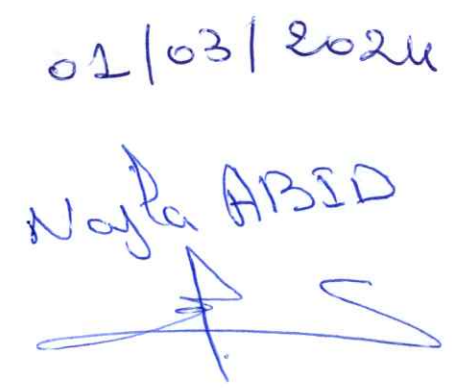 01/03/2024
Najla ABID